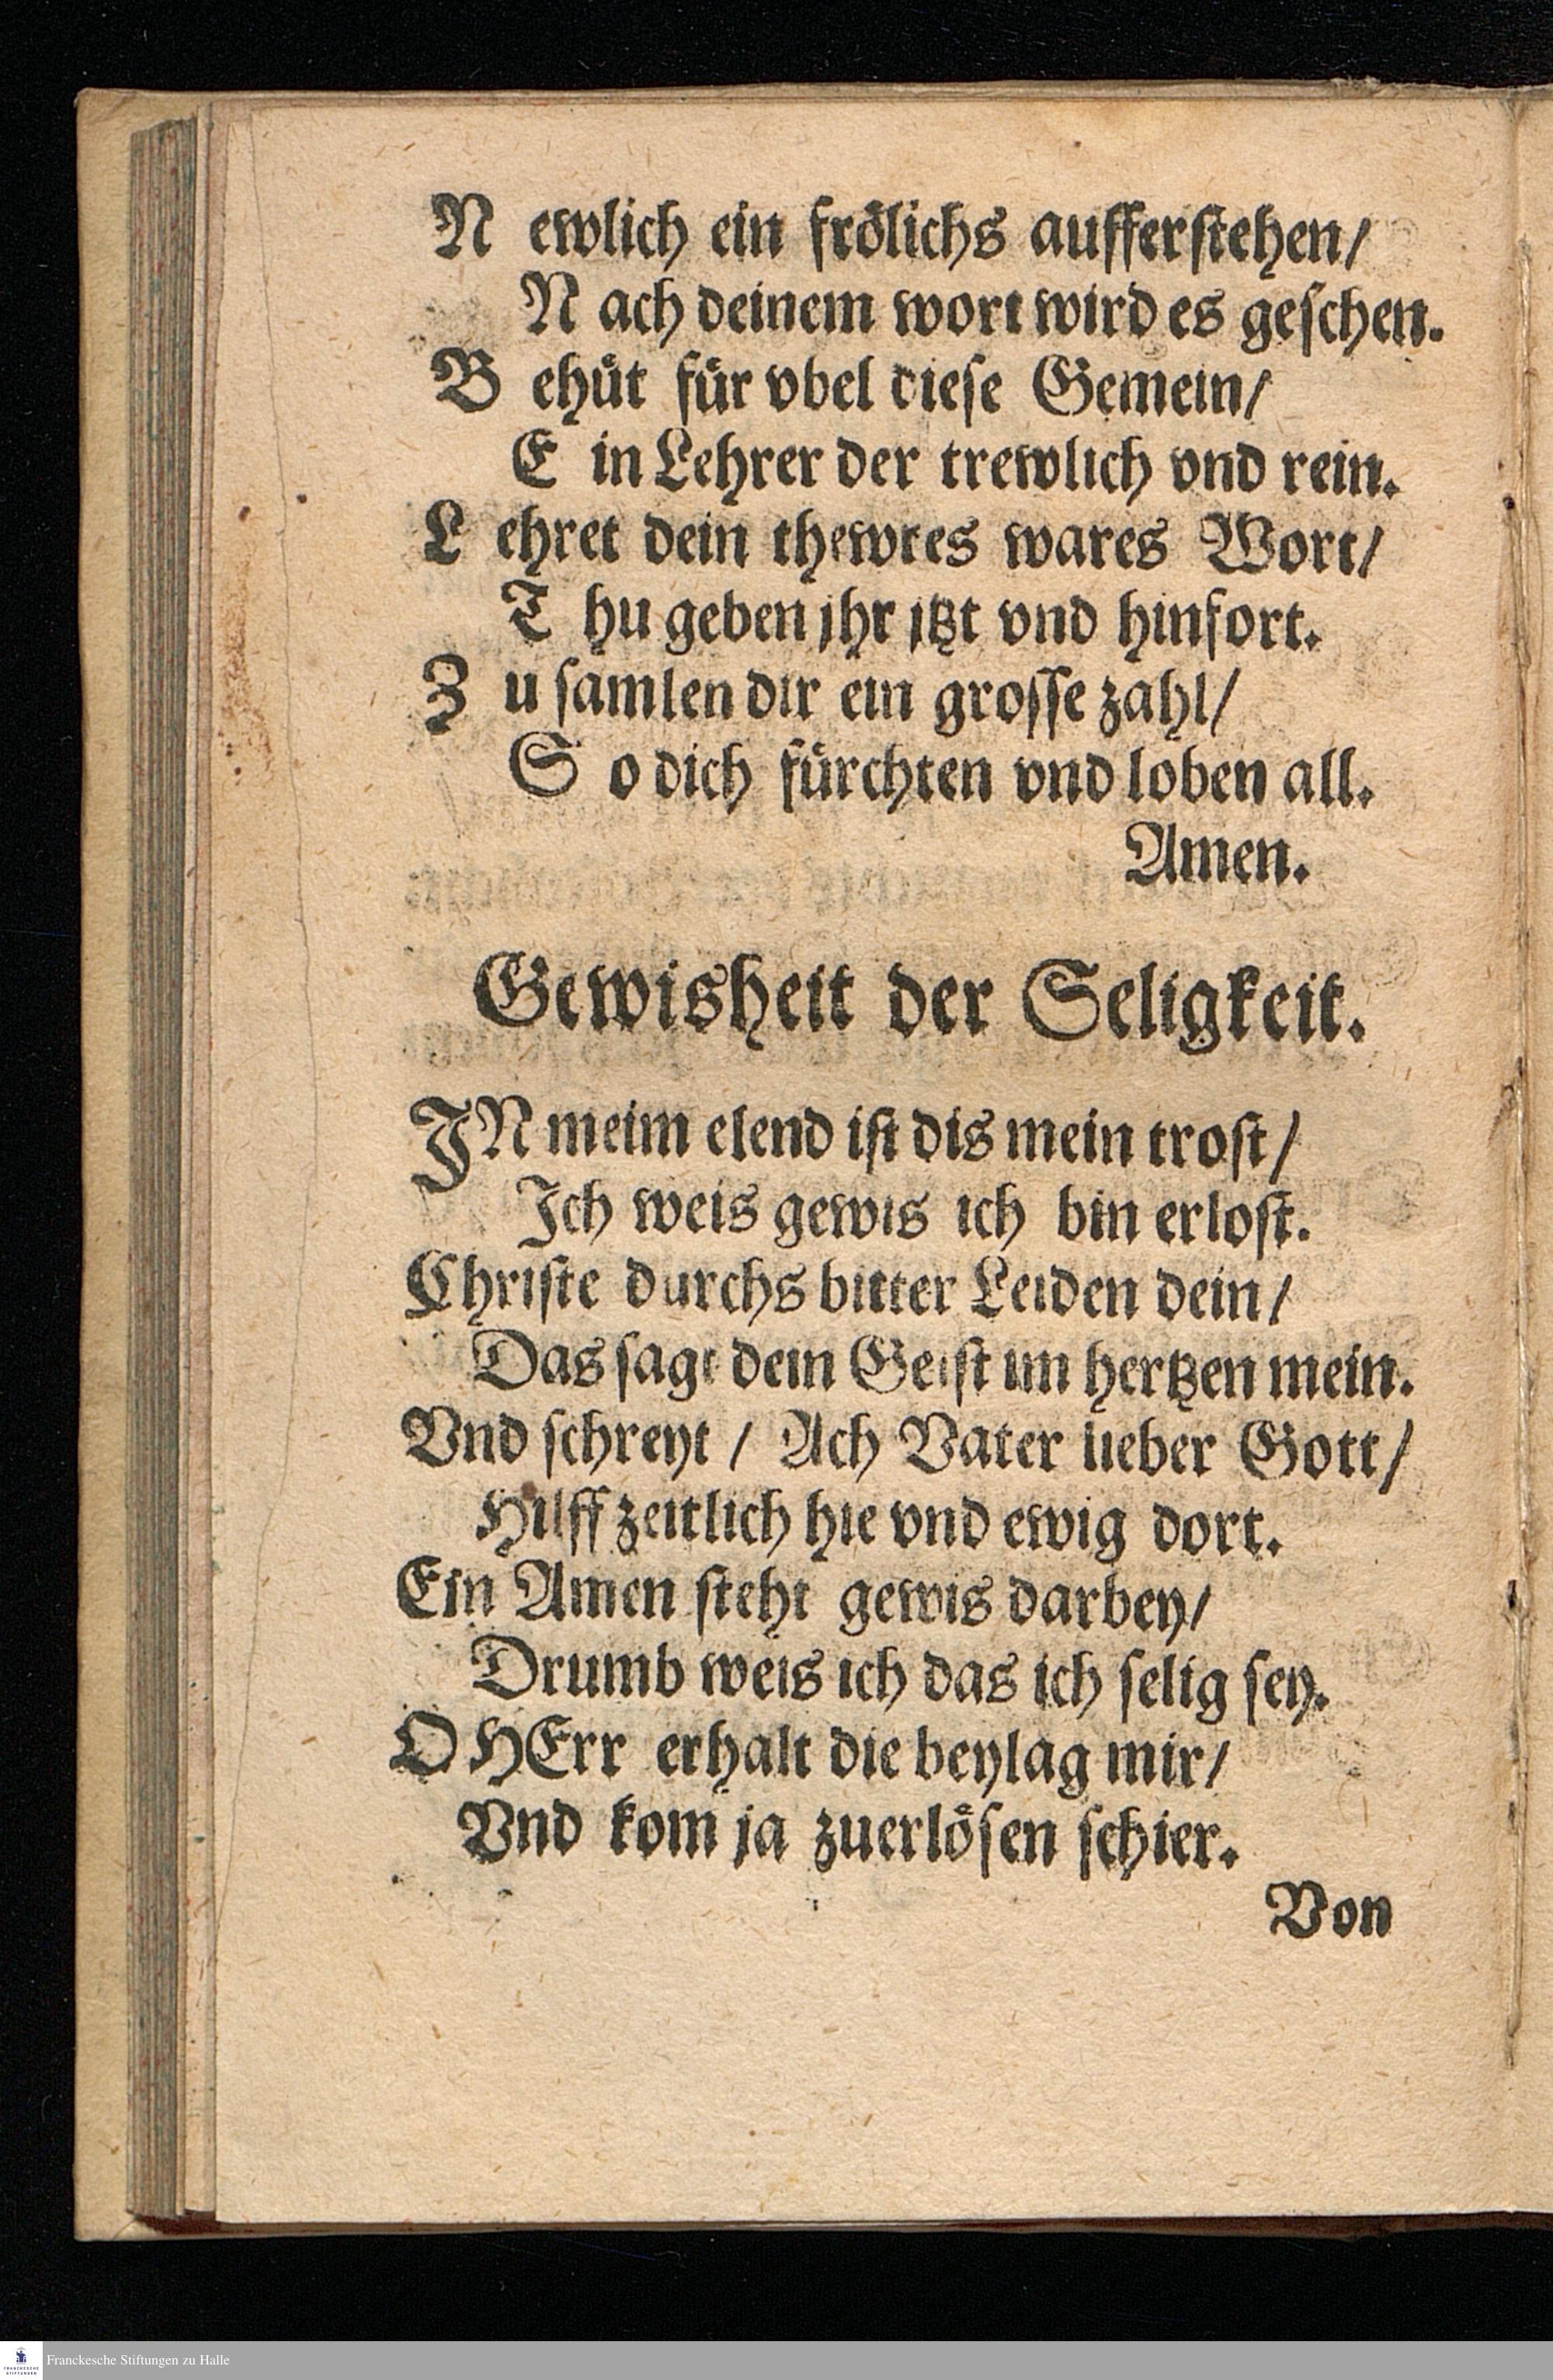 N ewlich ein frölichs aufferstehen/
N ach deinem wort wird es geschen.
B ehüt für vbel diese Gemein/
E in Lehrer der trewlich vnd rein.
L ehret dein thewres wares Wort/
T hu geben jhr jtzt vnd hinfort.
Z u samlen dir ein grosse zahl/
S o dich fürchten vnd loben all.
Amen.
Gewisheit der Seligkeit.
IN meim elend ist dis mein trost/
Ich weis gewis ich bin erlost.
Christe durchs bitter Leiden dein/
Das sagt dein Geist im hertzen mein.
Vnd schreyt / Ach Vater lieber Gott/
Hilff zeitlich hie vnd ewig dort.
Ein Amen steht gewis darbey/
Drumb weis ich das ich selig sey.
O HErr erhalt die beylag mir/
Vnd kom ja zuerlösen schier.
Von
FRANCKESCHE
STIFTUNGEN
Franckesche Stiftungen zu Halle